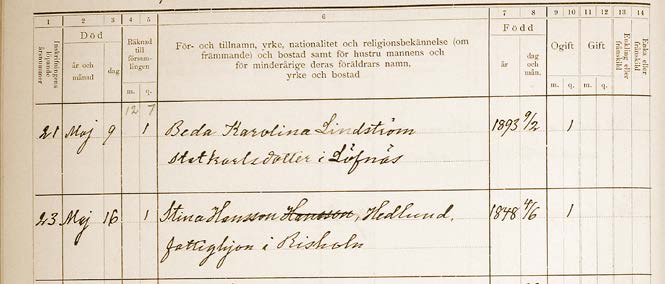 1 2 3 4 5 6 7 8 9 10 11 12 13 14
Inskrifningens löpande årsnummer
Död
Räknad till församlingen
För- och tillnamn, yrke, nationalitet och religionsbekännelse (om
främmande) och bostad samt för hustru mannens och
för minderårige deras föräldrars namn,
yrke och bostad
Född
Ogift
Gift
Enkling eller frånskild
Enka eller frånskild
år och månad
dag
m. q.
år
dag och mån.
m. q. m. q.
12 7
21 Maj 9 1 Beda Karolina Lindström 1893 9/2 1
statkarlsdotter i Löfnäs
23 Maj 16 1 Stina Hansson Hansson, Hedlund, 1848 4/6 1
fattighjon i Risholn